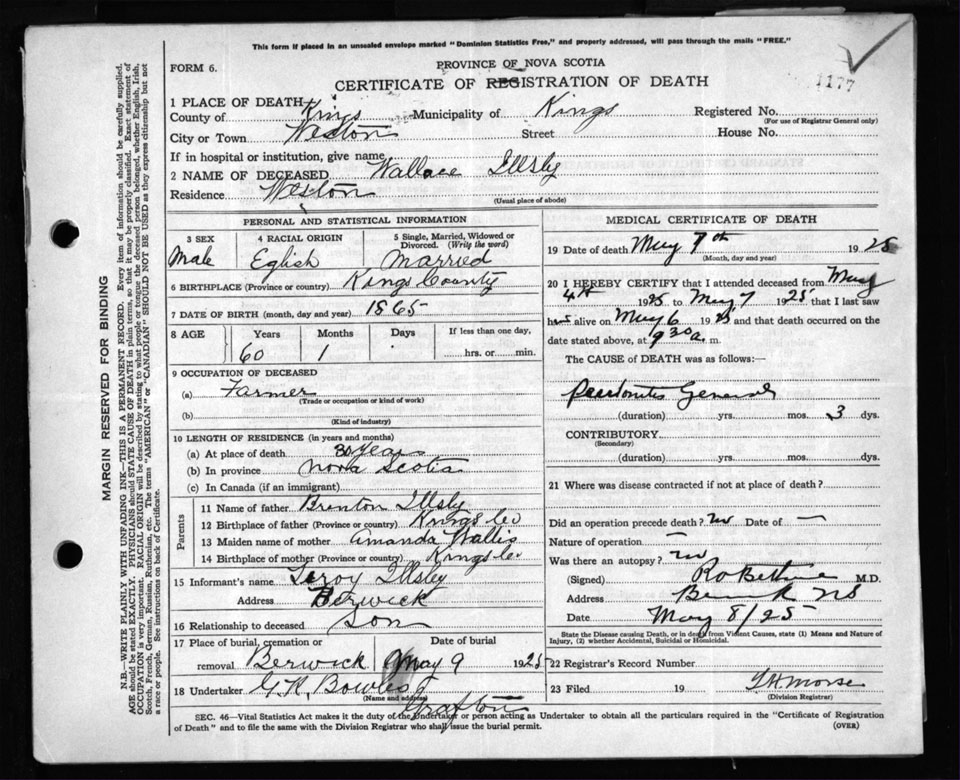 This form if placed in an unsealed envelope marked "Dominion Statistics Free," and properly addressed, will pass through the mails "FREE."
FORM 6.
PROVINCE OF NOVA SCOTIA
CERTIFICATE OF REGISTRATION OF DEATH
1177
1 PLACE OF DEATH
County of Kings Municipality of Kings Registered No.
(For use of Registrar General only)
City or Town Weston Street House No.
If in hospital or institution, give name
2 NAME OF DECEASED Wallace Illsly
Residence Weston
(Usual place of abode)
PERSONAL AND STATISTICAL INFORMATION
3 SEX 4 RACIAL ORIGIN 5 Single, Married, Widowed or Divorced. (Write the word)
Male Eglish Married
6 BIRTHPLACE (Province or country) Kings County
7 DATE OF BIRTH (month, day and year) 1865
8 AGE Years Months Days If less than one day,
60 1 hrs. or min.
9 OCCUPATION OF DECEASED
(a) Farmer
(Trade or occupation or kind of work)
(b)
(Kind of industry)
10 LENGTH OF RESIDENCE (in years and months)
(a) At place of death 30 Years
(b) In province Nova Scotia
(c) In Canada (if an immigrant)
Parents
11 Name of father Brenton Illsly
12 Birthplace of father (Province or country) Kings Co
13 Maiden name of mother Amanda Wallis
14 Birthplace of mother (Province or country) Kings Co
15 Informant's name Leroy Illsley
Address Berwick
16 Relationship to deceased Son
17 Place of burial, cremation or removal Berwick Date of burial May 9 1925
18 Undertaker G.K. Bowles
(Name and address)
Grafton
MEDICAL CERTIFICATE OF DEATH
19 Date of death May 7th 1925
(Month, day and year)
20 I HEREBY CERTIFY that I attended deceased from May
4th 1925 to May 7 1925 that I last saw
him alive on May 6 1925 and that death occurred on the
date stated above, at 9 30 a. m.
The CAUSE of DEATH was as follows:—
General
(duration) yrs. mos. 3 dys.
CONTRIBUTORY
(Secondary)
(duration) yrs. mos. dys.
21 Where was disease contracted if not at place of death?
Did an operation precede death? no Date of —
Nature of operation —
Was there an autopsy? no
(Signed) M.D.
Address NS
Date May 8/25
State the Disease causing Death, or in death from Violent Causes, state (1) Means and Nature of Injury, (2) whether Accidental, Suicidal or Homicidal.
22 Registrar's Record Number
23 Filed 19 Morse
(Division Registrar)
SEC. 46—Vital Statistics Act makes it the duty of the Undertaker or person acting as Undertaker to obtain all the particulars required in the "Certificate of Registration
of Death" and to file the same with the Division Registrar who shall issue the burial permit.
(OVER)
MARGIN RESERVED FOR BINDING
N.B.—WRITE PLAINLY WITH UNFADING INK—THIS IS A PERMANENT RECORD. Every item of information should be carefully supplied.
AGE should be stated EXACTLY. PHYSICIANS should STATE CAUSE OF DEATH in plain terms, so that it may be properly classified. Exact statement of
OCCUPATION is very important. RACIAL ORIGIN will be described by stating to what people or tongue the deceased person belonged, whether English, Irish,
Scotch, French, German, Russian, Ruthenian, etc. The terms "AMERICAN" or "CANADIAN" SHOULD NOT BE USED as they express citizenship but not
a race or people. See instructions on back of Certificate.